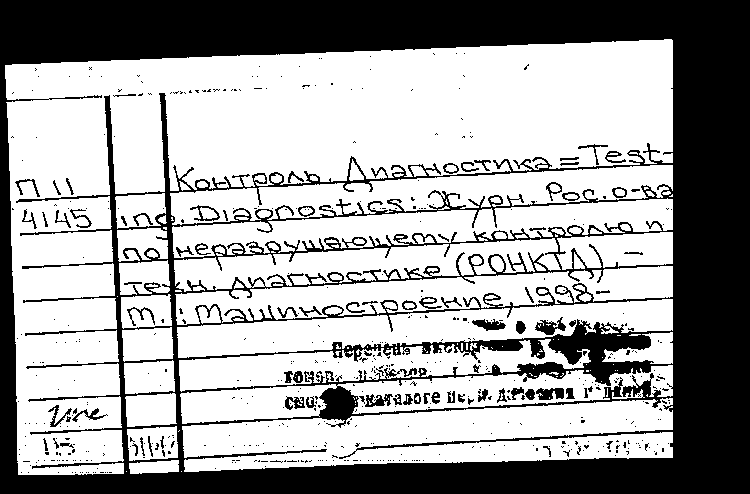 П 11 Контроль. Диагностика = Test-
4145 ing. Diagnostics: Журн. Рос. о-ва
по неразрушающему контролю и
техн. диагностике (РОНКТД). –
М.: Машиностроение, 1998–
Перечень
томов,
каталоге
115